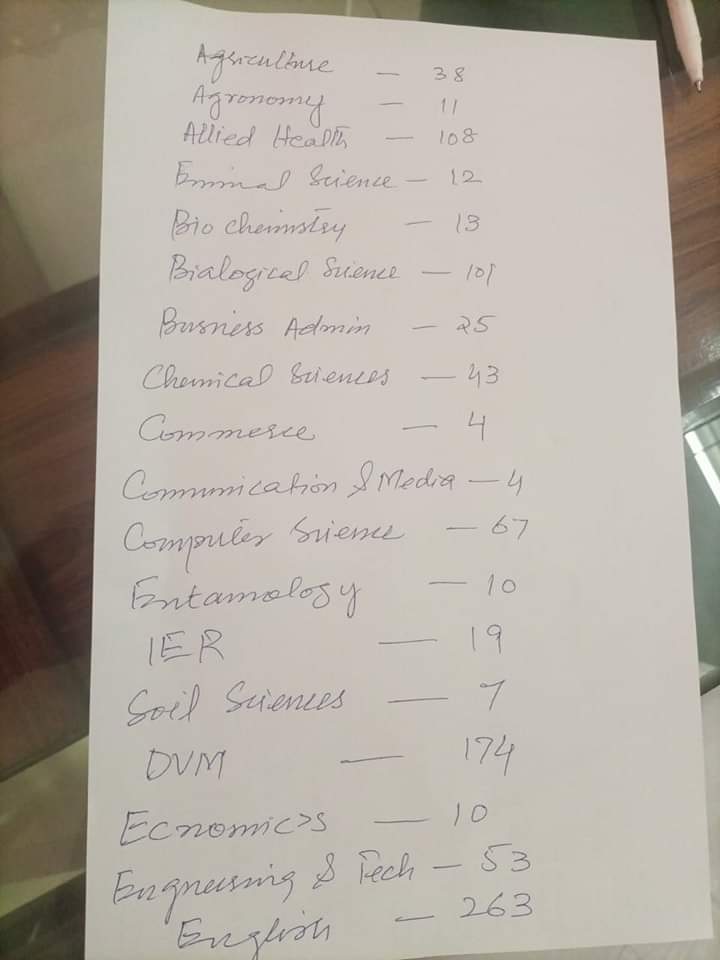 Agriculture — 38
Agronomy — 11
Allied Health — 108
Enimal Science — 12
Bio chemistry — 13
Bialogical Science — 101
Busness Admin — 25
Chemical Sciences — 43
Commerce — 4
Communication & Media — 4
Computer Science — 67
Entamology — 10
IER — 19
Soil Sciences — 7
DVM — 174
Ecnomics — 10
Engneering & Tech — 53
English — 263